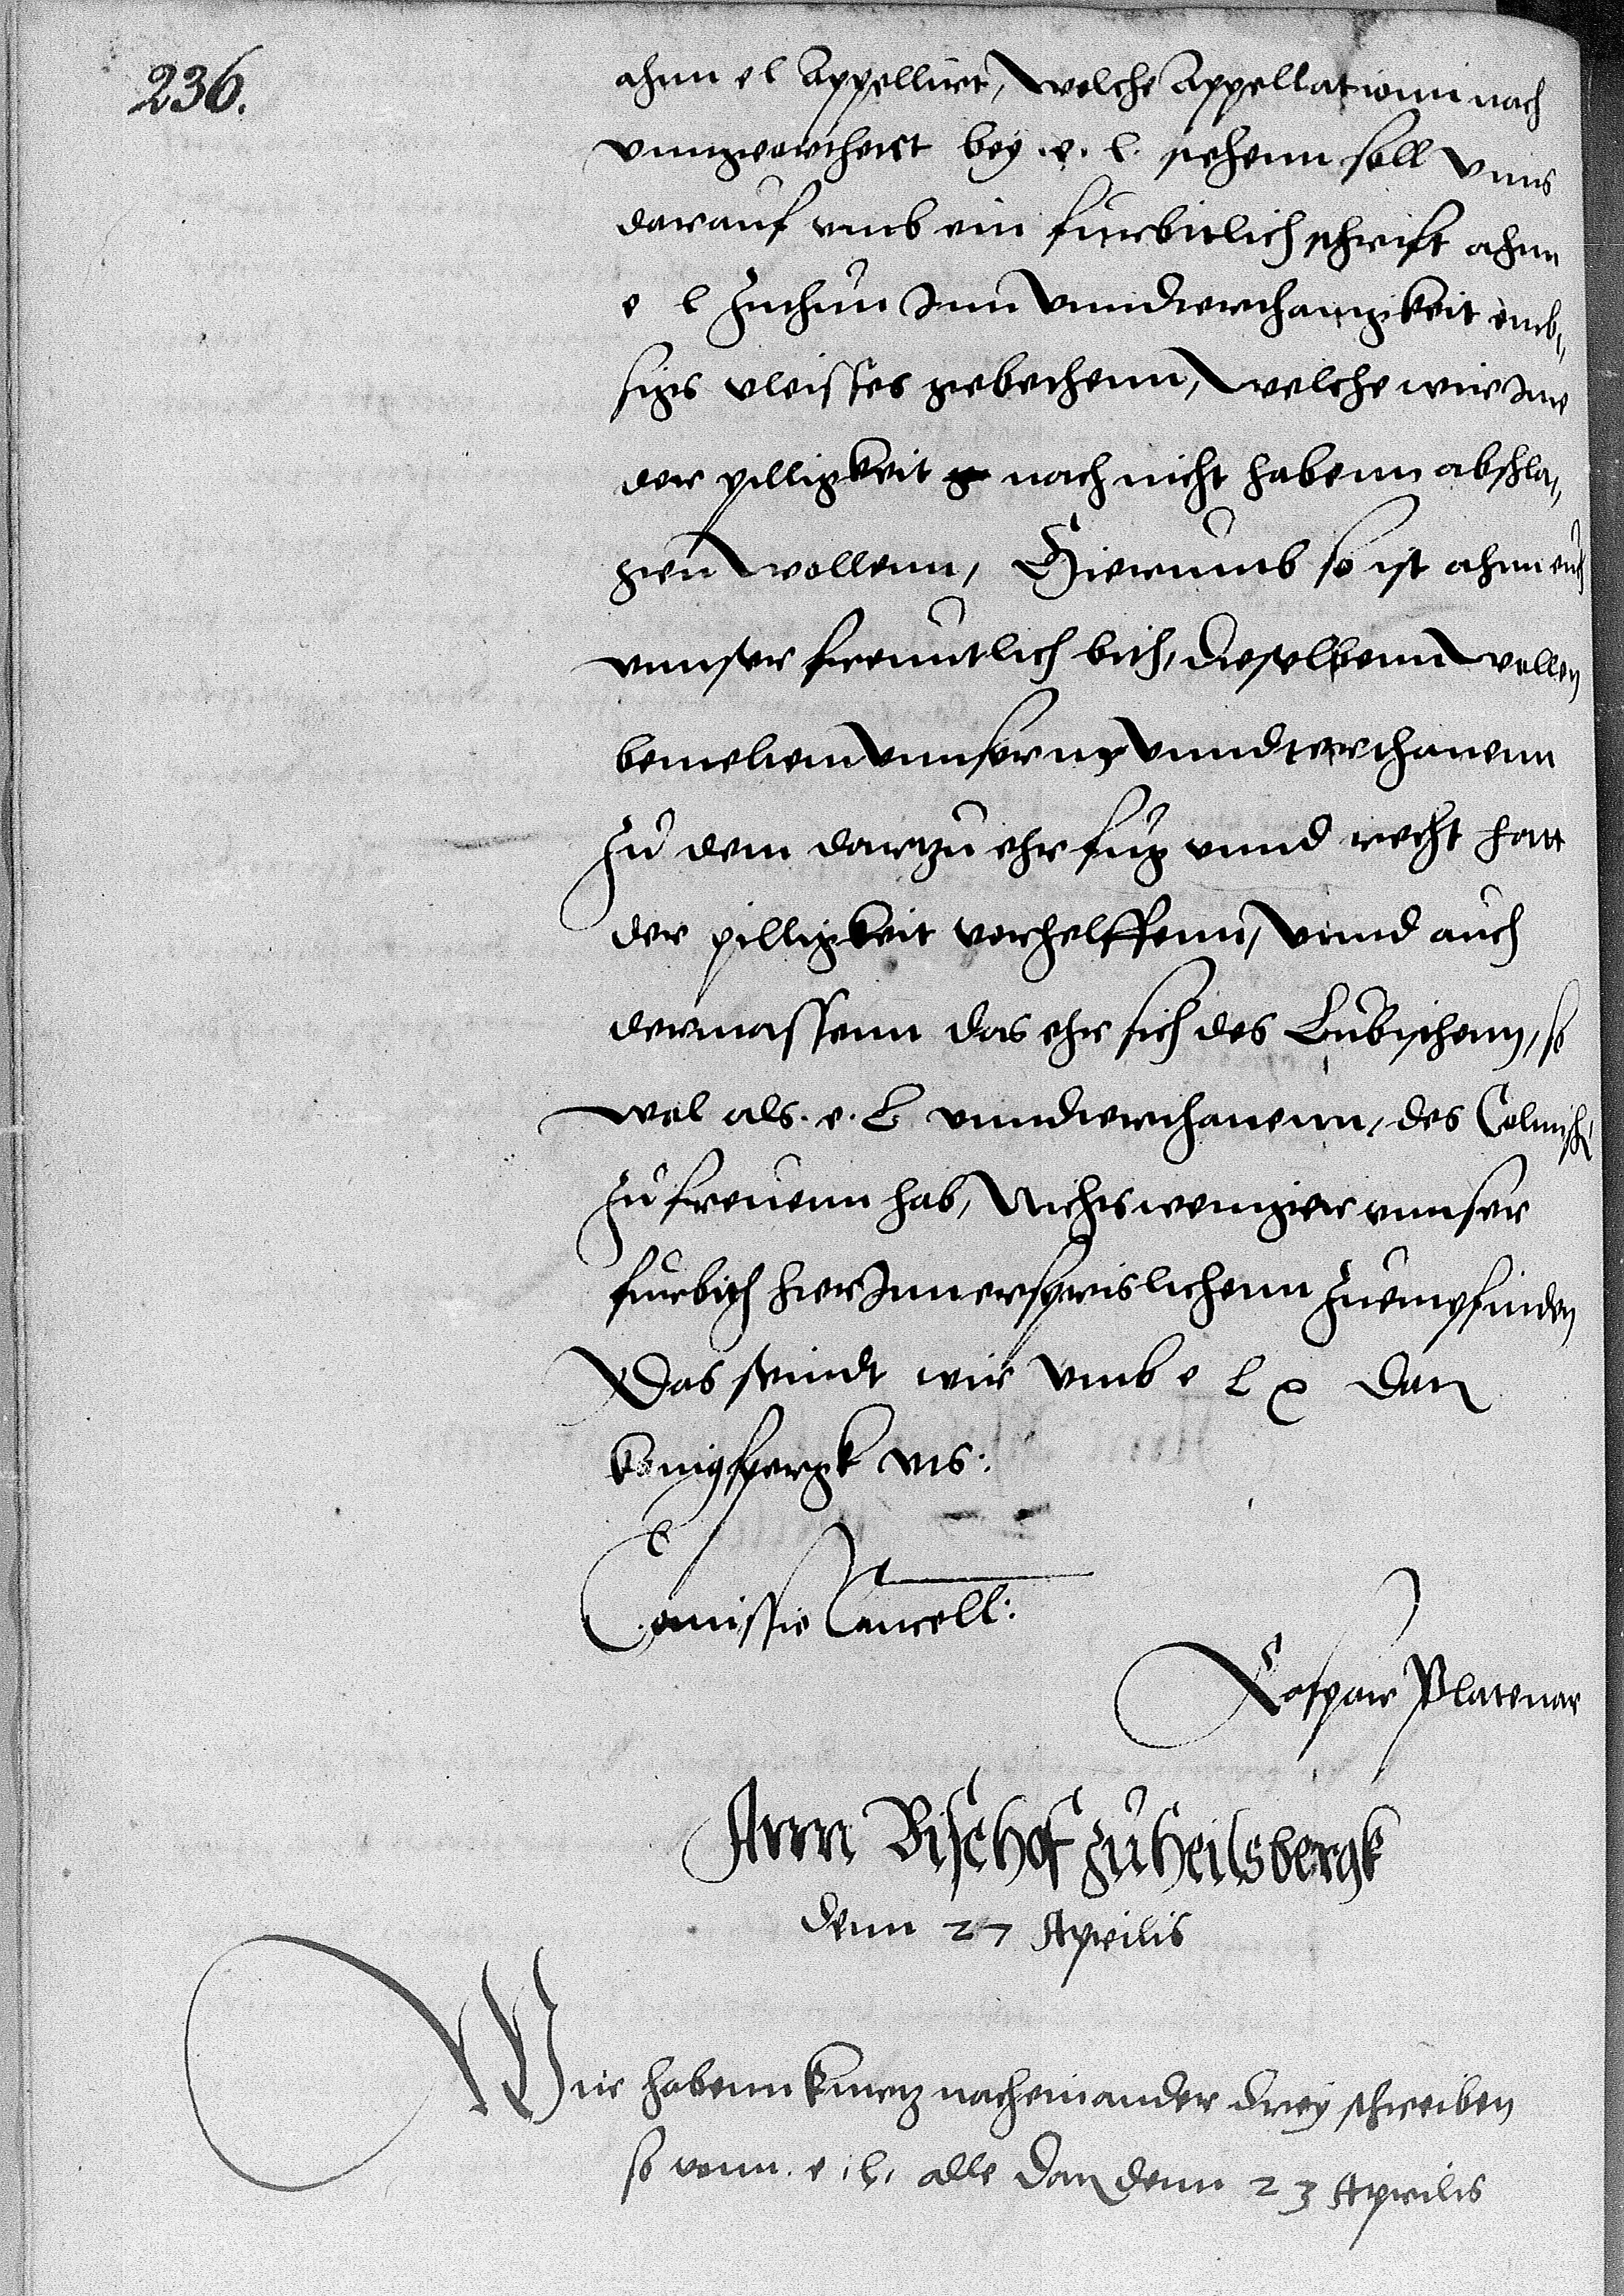 236.
ahnn e l Appellirt, welche Appellationn nach
unngeorthert bey .e. l. stehenn soll unns
darauf umb ein furbitlich schrift ahnn
e l Zuthun Inn Unnderthanigkeit emb,,
siges vleisses gebethenn, welche wir Ime
der pilligkeit nach nicht habenn abschla,,
genn wollenn, Hierumb so ist ahnn euch
unnser freuntlich bith, dieselbenn wollen
bemeltenn unnsernn unnderthanenn
Zu dem dartzu ehr fug unnd recht hatt
der pilligkeit verhelffenn, unnd auch
dermassenn das ehr sich des Lubischenn, so
wol als .e. L unnderthanenn, des Colmisch,
Zu freuenn hab, Nichts weniger unnser
furbith hierInn ersprislichenn Zuempfinden
Das seindt wir umb e L Dat
konigspergk uts:
Comissio Cancell:
Caspar Platenar
Ann Bischof zu Heilsbergk
denn 27 Aprilis
Wir habenn kurtz nacheinander drey schreiben
so vonn .e. l. alle Dat denn 23 Aprilis